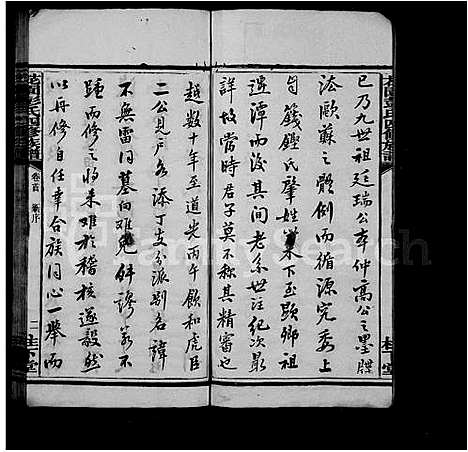 已乃九世祖廷瑞公奉仲高公之墨牒
法歐蘇之體例而循源究委上
自籛鏗氏肇姓以下至點鄉祖
遷潭而後其間老系世注紀次最
詳故當時君子莫不称其精審也
越數十年至道光丙午餘和虎臣
二公見戶名添丁支分派別名諱
不無雷同墓向難免舛謬若不
踵而修之將來难於稽核遂毅然
以再修自任幸合族同心一舉而
彭氏四修族譜
卷首 新序
二
堂
FamilySearch